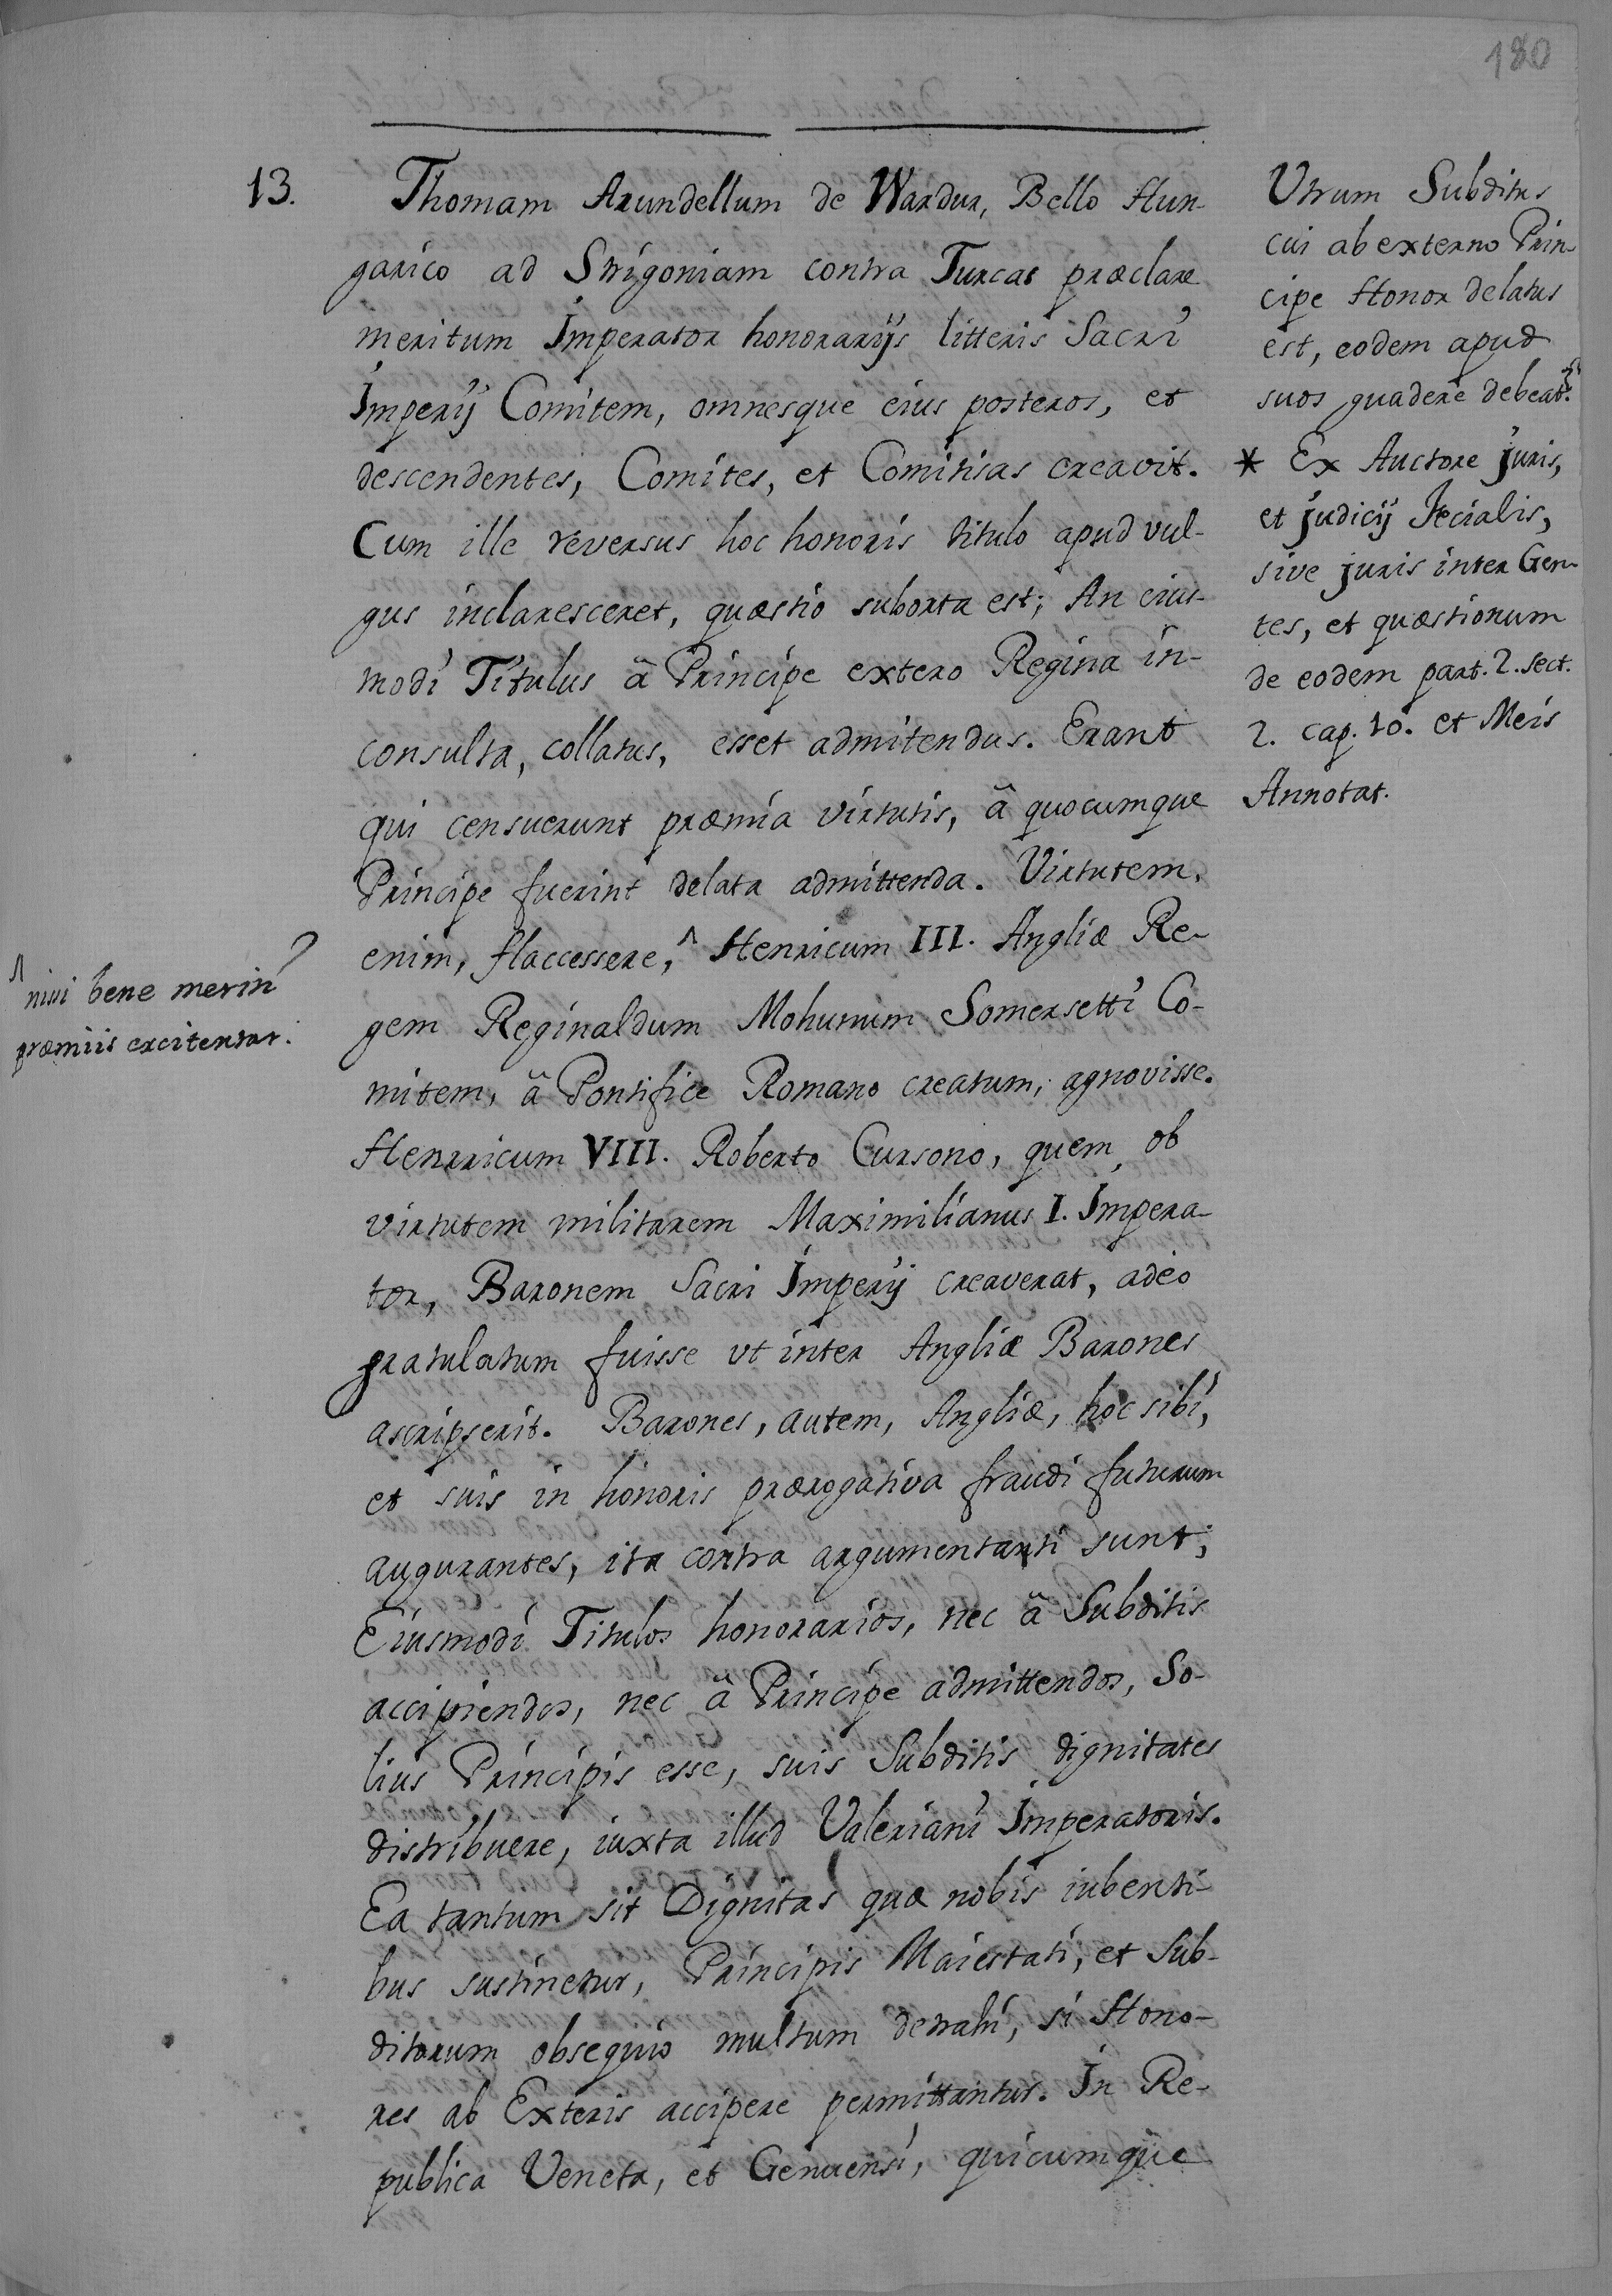 180
13.
Thomam Arundellum de Wardur, Bello Hun-
garico ad Strigoniam contra Turcas præclare
meritum Imperator honorarijs litteris Sacri
Imperij Comitem, omnesque eius posteros, et
descendentes, Comites, et Comitisas creavit.
Cum ille reversus hoc honoris titulo apud vul-
gus inclaresceret, quæstio suborta est; An eius-
modi Titulus â Principe extero Regina in-
consulta, collatus, esset admitendus. Erant
qui censuerunt præmia virtutis, â quocumque
Principe fuerint delata admittenda. Virtutem,
enim, flaccessere, ^ Henricum III. Angliæ Re-
gem Reginaldum Mohunum Somersetti Co-
mitem, â Pontifice Romano creatum, agnovisse.
Henrricum VIII. Roberto Cursono, quem ob
virtutem militarem Maximilianus I. Impera-
tor, Baronem Sacri Imperij creaverat, adeo
gratulatum fuisse vt inter Angliæ Barones
ascripserit. Barones, autem, Angliæ, hoc sibi,
et suis in honoris prærogativa fraudi futurum
augurantes, ita contra argumentati sunt;
Eiusmodi Titulos honorarios, nec â Subditis
accipiendos, nec â Principe admittendos, So-
lius Principis esse, suis Subditis dignitates
distribuere, iuxta illud Valeriani Imperatoris.
Ea tantum sit Dignitas quæ nobis iubenti-
bus sustinetur, Principis Maiestati, et Sub-
ditorum obsequio multum detrahi, si Hono-
res ab Exteris accipere permittantur. In Re-
publica Veneta, et Genuensi, quicumque
^ nisi bene meriti
præmiis excitentur.
Utrum Subditus
cui ab externo Prin-
cipe Honor delatus
est, eodem apud
suos guadere debeat?
* Ex Auctore juris,
et judicij Fecialis,
sive juris inter Gen-
tes, et quæstionum
de eodem part. 2. sect.
2. cap. 10. et Meis
Annotat.